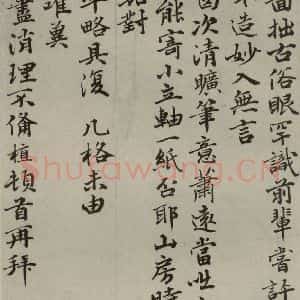 面拙古俗眼罕識前輩嘗評
不造妙入無言
胸次清曠筆意蕭遠當世
能寄小立軸一紙否耶山房時
對
草略具復 凡格未由
唯冀
盡消理不備植頓首再拜
Shufawang.CN